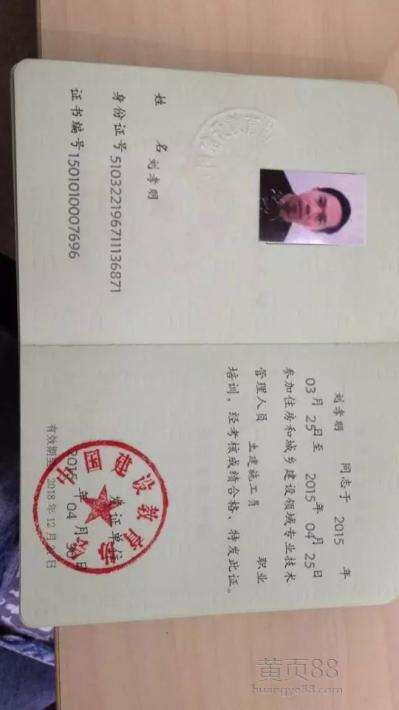 姓 名 刘孝明
身份证号 510322196711136871
证书编号 1501010007696
刘孝明 同志于 2015 年
03 月 25 日至 2015 年 04 月 25 日
参加住房和城乡建设领域专业技术
管理人员 土建施工员 职业
培训，经考核成绩合格，特发此证。
中国建设教育协会
发证单位
年 04 月 30 日
有效期 2018 年 12 月 日
黄页88
huangye88.com